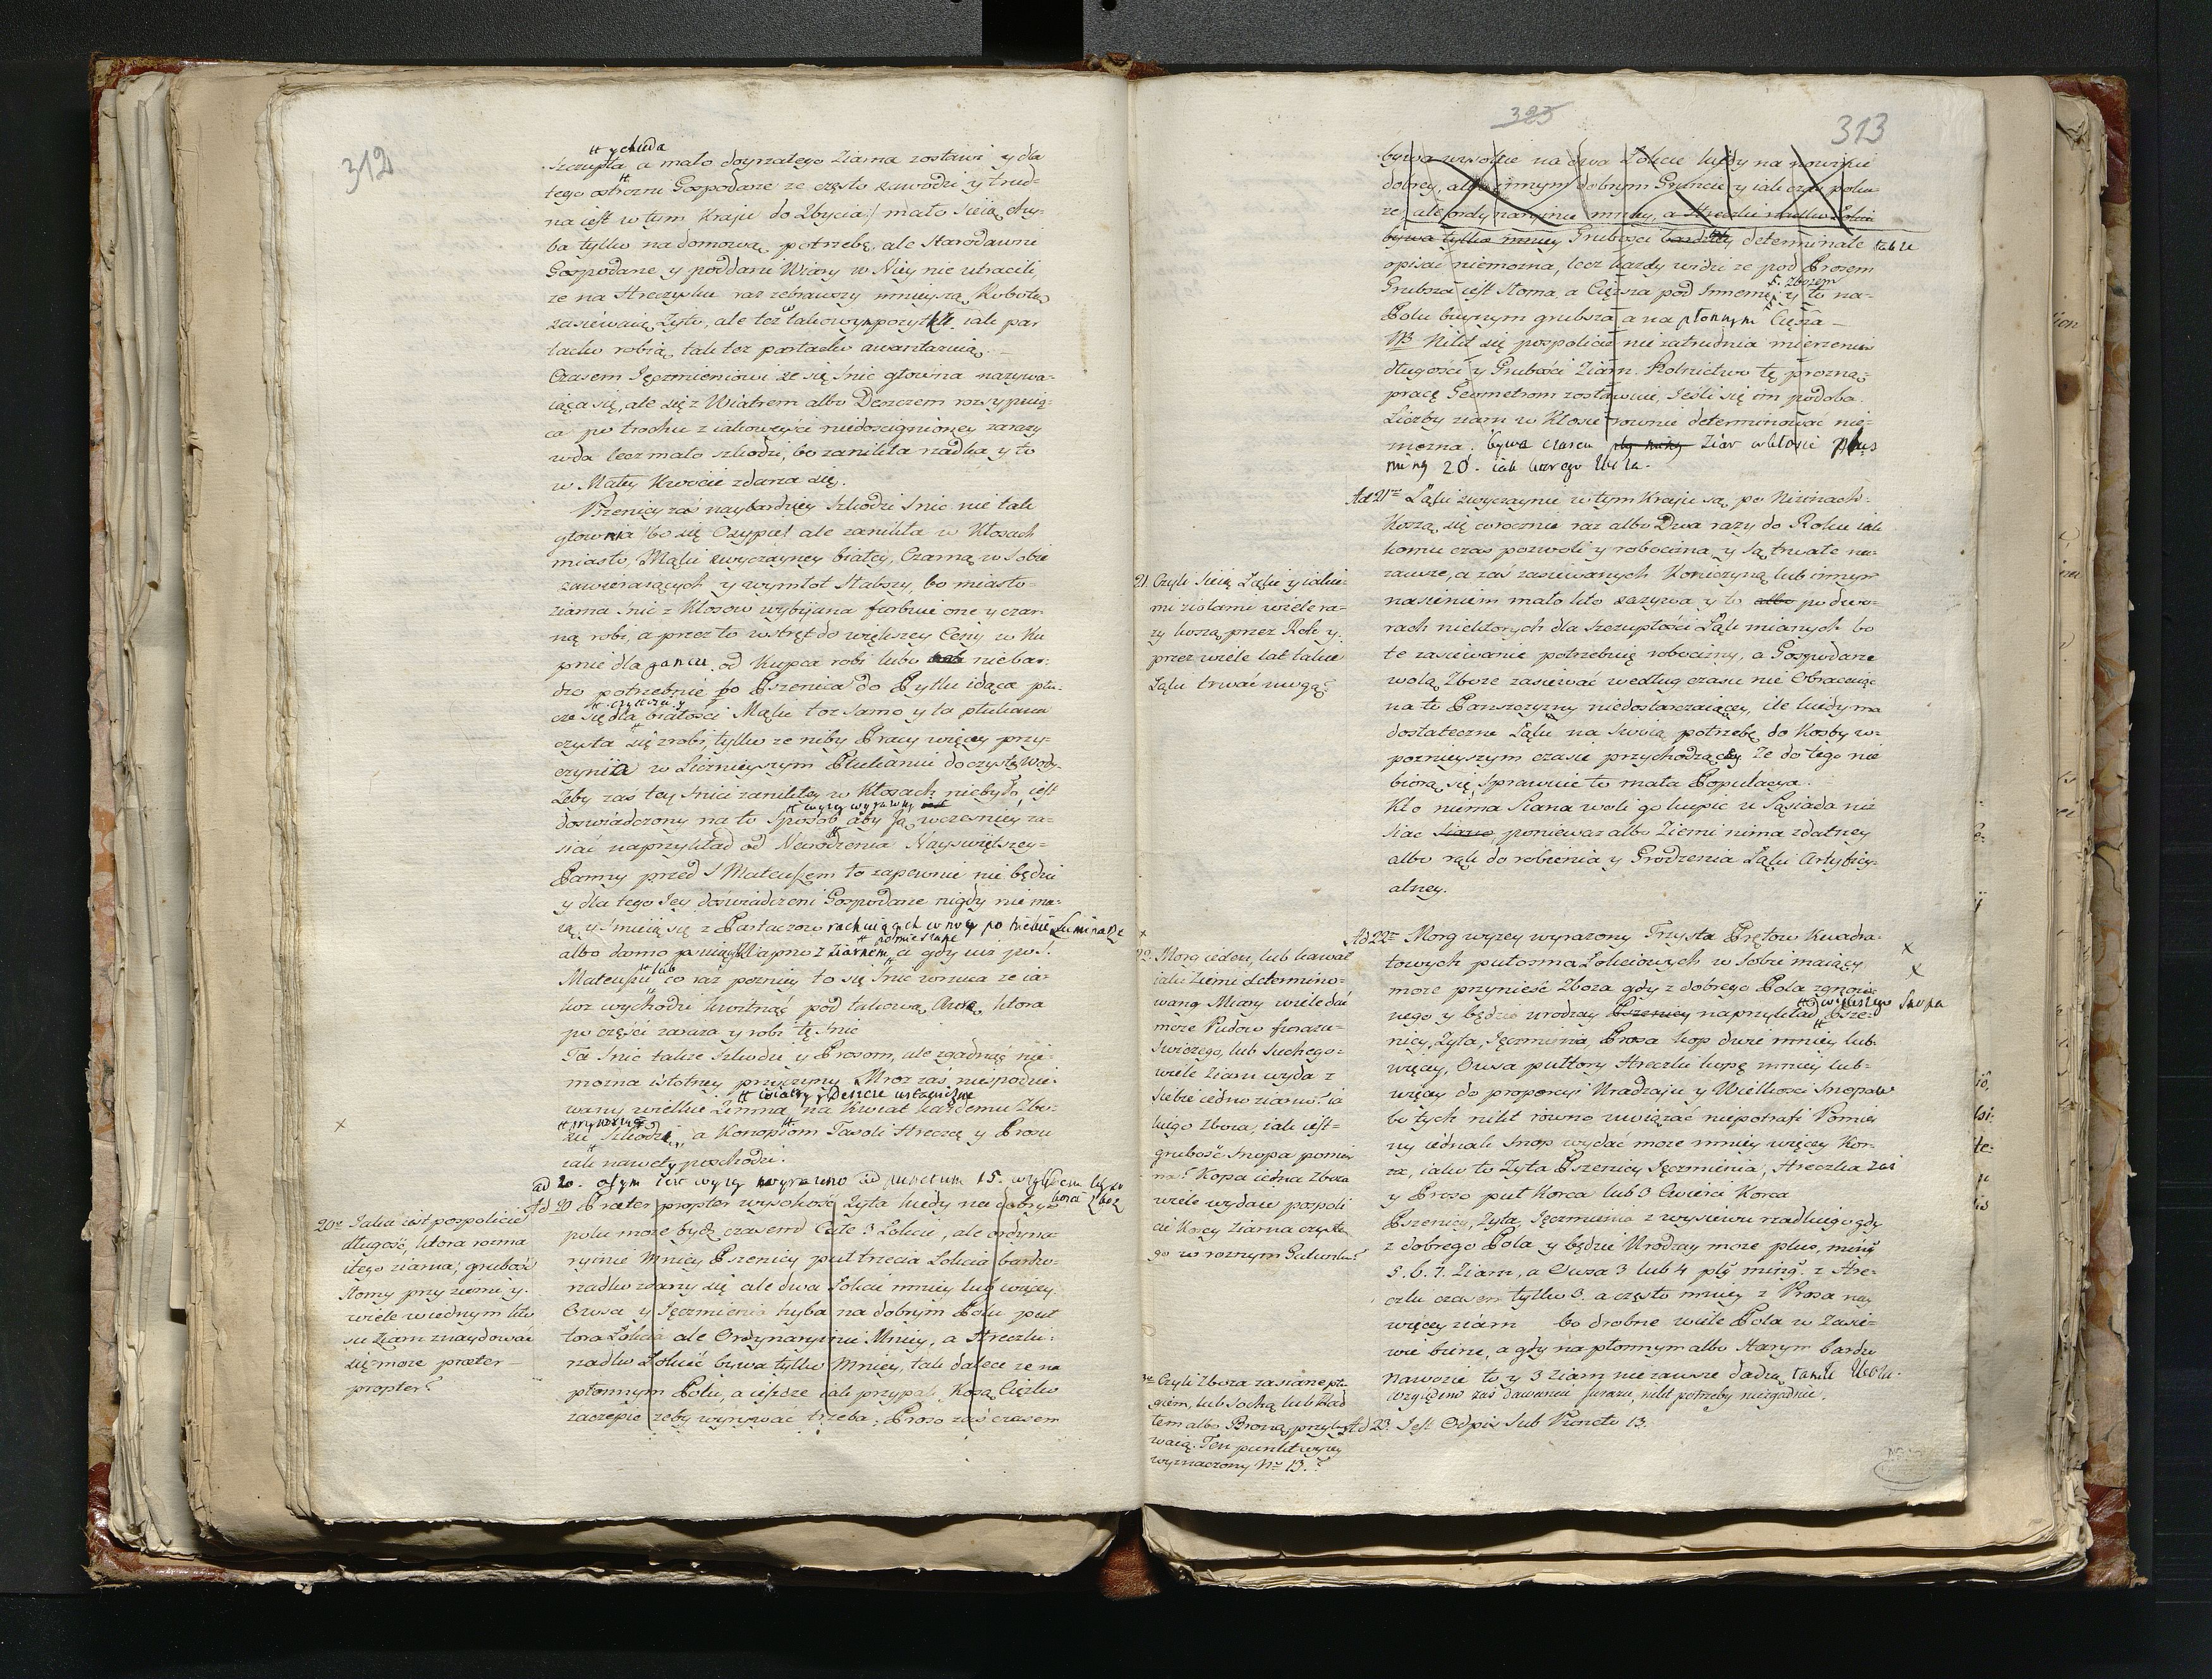 312
# y chuda
Szczupła a mało doyrzałego Ziarna zostawi y dla
tego ostrozni Gospodarze ze często zawodzi y trud-
na iest w tym Kraju do Zbycia:/ mało sieią chy-
ba tylko na domową potrzebę, ale Starodawni
Gospodarze y poddani Wiary w Niey nie utracili,
ze na Hreczysku raz zebrawszy mnieyszą Robotą
zasiewaią Zyto, ale tez takowym pozytek iak par
tacko robią, tak tez partacko awantazuią.
Czasem Jęczmieniowi ze się Snic głownia nazywa-
iąca się, ale się z Wiatrem albo Deszczem rozsypuią-
ca po trochu z iakoweyści niedoscignioney zarazy
wda lecz mało szkodzi, bo zanikła rzadka y to
w Małey Kwocie zdarza się.
Pszenicy zas naybardziey Szkodzi Snic nie tak
głownia /bo się Osypie/ ale zanikła w Kłosach
miasto Mąki zwyczayney białey, Czarną w Sobie
zawieraiących y wymłot Słabszy, bo miasto
ziarna Snic z Kłosow wybijana farbuie one y czar-
ną robi, a przez to wstręt do większey Ceny w Ku
pnie dla ganeu. od Kupca robi lubo niebar-
dzo potrzebnie bo Pszenica do Pytlu idąca płu-
cze się dla białości Mąki toz samo y ta płukana
czysta się zrobi, tylko ze niby Pracy więcey przy-
czynia w Licznieyszym Płukaniu do czystey Wody.
Zeby zas tey Snici zanikłey w Kłosach niebyło, iest
# wyzey wyrazony
doswiadczony na to Sposob aby Ją wczesniey za-
siać naprzykład od Narodzenia Nayswiętszey-
Panny przed S Mateuszem to zapewnie nie będzie
y dla tego Jey doswiadczeni Gospodarze nigdy nie ma-
ią y Smieią się z Partaczow rachuiących w nocy po niebie Luminarze
# pomieszane
albo darmo psuiących Wapno z Ziarnem, a gdy iuz po S.
# lub
Mateuszu co raz pozniey to się Snic wrzuca ze ia-
koz wychodzi kwitnąć pod takową Aurą, ktora
po części zaraza y robi tę Snic
Ta Snic takze Szkodzi y Prosom, ale zgadnąć nie-
mozna istotney przyczyny. Mroz zas niespodzie-
# wiatry y Deszcze ustawiczne
wany wielkie Zimna na Kwiat kazdemu Zbo-
zu Szkodzi, a Konopiom Fasoli Hreczce y Prosu
iak nawet y poschodzi.
×
ad 20. o tym iest wyzey wyrazono ad punctum 15. względem
Ad 20 Præter propter wysokość Zyta kiedy na dobrym
polu moze bydź czasem Całe 3 Łokcie, ale ordyna-
ryinie Mniey Pszenicy puł trzecia Łokcia bardzo-
rzadko zdarzy się ale dwa Łokcie mniey lub więcey
Owsa y Jęczmienia hyba na dobrym Polu puł
tora Łokcia ale Ordynaryinie Mniey, a Hreczki-
rzadko Łokieć bywa tylko Mniey, tak dalece ze na
płonnym Polu, a ieszcze iak przypali Kosą Ciężko
zaczepić zeby wyrywać trzeba; Proso zas czasem
20mo Jaka iest pospolicie
długość, ktora rozma
itego ziarna; grubość
słomy przy ziemi y.
wiele w iednym kło
su Ziarn znaydować
się moze præter-
propter?
325
313
bywa wysokie na dwa Łokcie kiedy na nowinie
dobrey, albo innym dobnym Gruncie y iak czas posłu-
ze, ale ordynaryinie mniey, a Hreczki rzadko Łokieć
bywa tylko mniey Grubości determinate takze
opisać niemozna, lecz kazdy widzi ze pod Prosem
Grubsza iest Słoma, a Cięzsza pod Innemi zbozem y to na-
Polu buynym grubsza a na płonnym Cięsza-
NB Nikt się pospolicie nie zatrudnia mierzeniem
długości y Grubości Ziarn. Rolnictwo tę prozną
pracę Geometrom zostawuie, Jeśli się im podoba.
Liczby ziarn w Kłosie rownie determinować nie-
mozna; bywa czasem Ziar w kłosie plus
minus 20. iak ktorego Roku.
Ad 21mo Łąki zwyczaynie w tym Kraju są, po Nizinach-
Koszą się corocznie raz albo Dwa razy do Roku iak
komu czas pozwoli y robocizna y są trwałe na-
zawsze, a zas zasiewanych Koniczyną lub innym
nasieniem mało kto zazywa y to albo po dwo-
rach niektorych dla szczupłości Łąk mianych bo
te zasiewanie potrzebuię robocizny, a Gospodarze
wolą Zboze zasiewać według czasu nie Obracaiąc
na to Panszczyzny niedostarczaiącey, ile kiedy ma
dostateczne Łąki na Swoią potrzebę do Kosby w-
poznieyszym czasie przychodzącey Ze do tego nie
biorą się, sprawuie to mała Populacya.
Kto niema Siana woli go kupic u Sąsiada niz
siać siano, poniewaz albo Ziemi nima zdatney
albo rąk do robienia y Grodzenia Łąki Artyficy-
alney.
21. Czyli Sieią Łąki y iakie-
mi ziołami wiele ra-
zy koszą przez Rok y.
przez wiele lat takie
Łąki trwać mogą?
Ad 22mo Morg wyzey wyrazony Trzysta Prętow Kwadra-
towych pułosma Łokciowych w Sobie maiący
moze przynieść Zboza gdy z dobrego Pola zgnoio-
# większego Snopa
nego y będzie urodzay Pszenicy naprzykład Psze-
nicy, Zyta, Jęczmienia, Prosa kop dwie mniey lub
więcey, Owsa pułtory Hreczki kopę mniey lub-
więcey do proporcyi Uradzaju y Wielkości Snopow
bo tych nikt rowno uwiązać niepotrafi Pomier
ny iednak Snop wydać moze mniey więcey Kor-
za, iako to Zyta Pszenicy Jęczmienia, Hreczka zas
y Proso puł Korca lub 3 Cwierci Korca
Pszenicy, Zyta, Jęczmienia z wysiewu rzadkiego gdy
z dobrego Pola y będzie Urodzay moze plus, minus
5. 6. 7. Ziarn, a Owsa 3 lub 4 plus minus. z Hre-
czki czasem tylko 3. a często mniey z Prosa nay
więcey ziarn bo drobne wiele Pola w Zasie-
wie bierze, a gdy na płonnym albo Starym bardzo
nawozie to y 3 ziarn nie zawsze dadzą, tamte
względem zas dawania furazu, nikt potrzeby niezgadnie.
× × ×
22. Morg ieden, lub kawał
iaki Ziemi determino-
waney Miary wiele dać
moze Pudow furazu-
Swiezego, lub Suchego-
wiele Ziarn wyda z
siebie iedno ziarno? ia
kiego Zboza, iak iest-
grubość Snopa pomier
na? Kopa iedna Zboza
wiele wydaie pospoli
cie Korcy Ziarna czyste
go w roznym Gatunku?
Czyli Zboza zasiane płu
giem, lub sochą lub Rad
tem albo Broną przykry
waią. Ten punkt wyzey
wyznaczony No 13.?
Ad 23. Jest Odpis Sub Puncto 13.